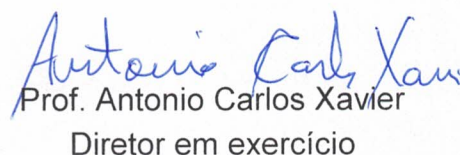 Antonio Carlos Xavi
Prof. Antonio Carlos Xavier
Diretor em exercício